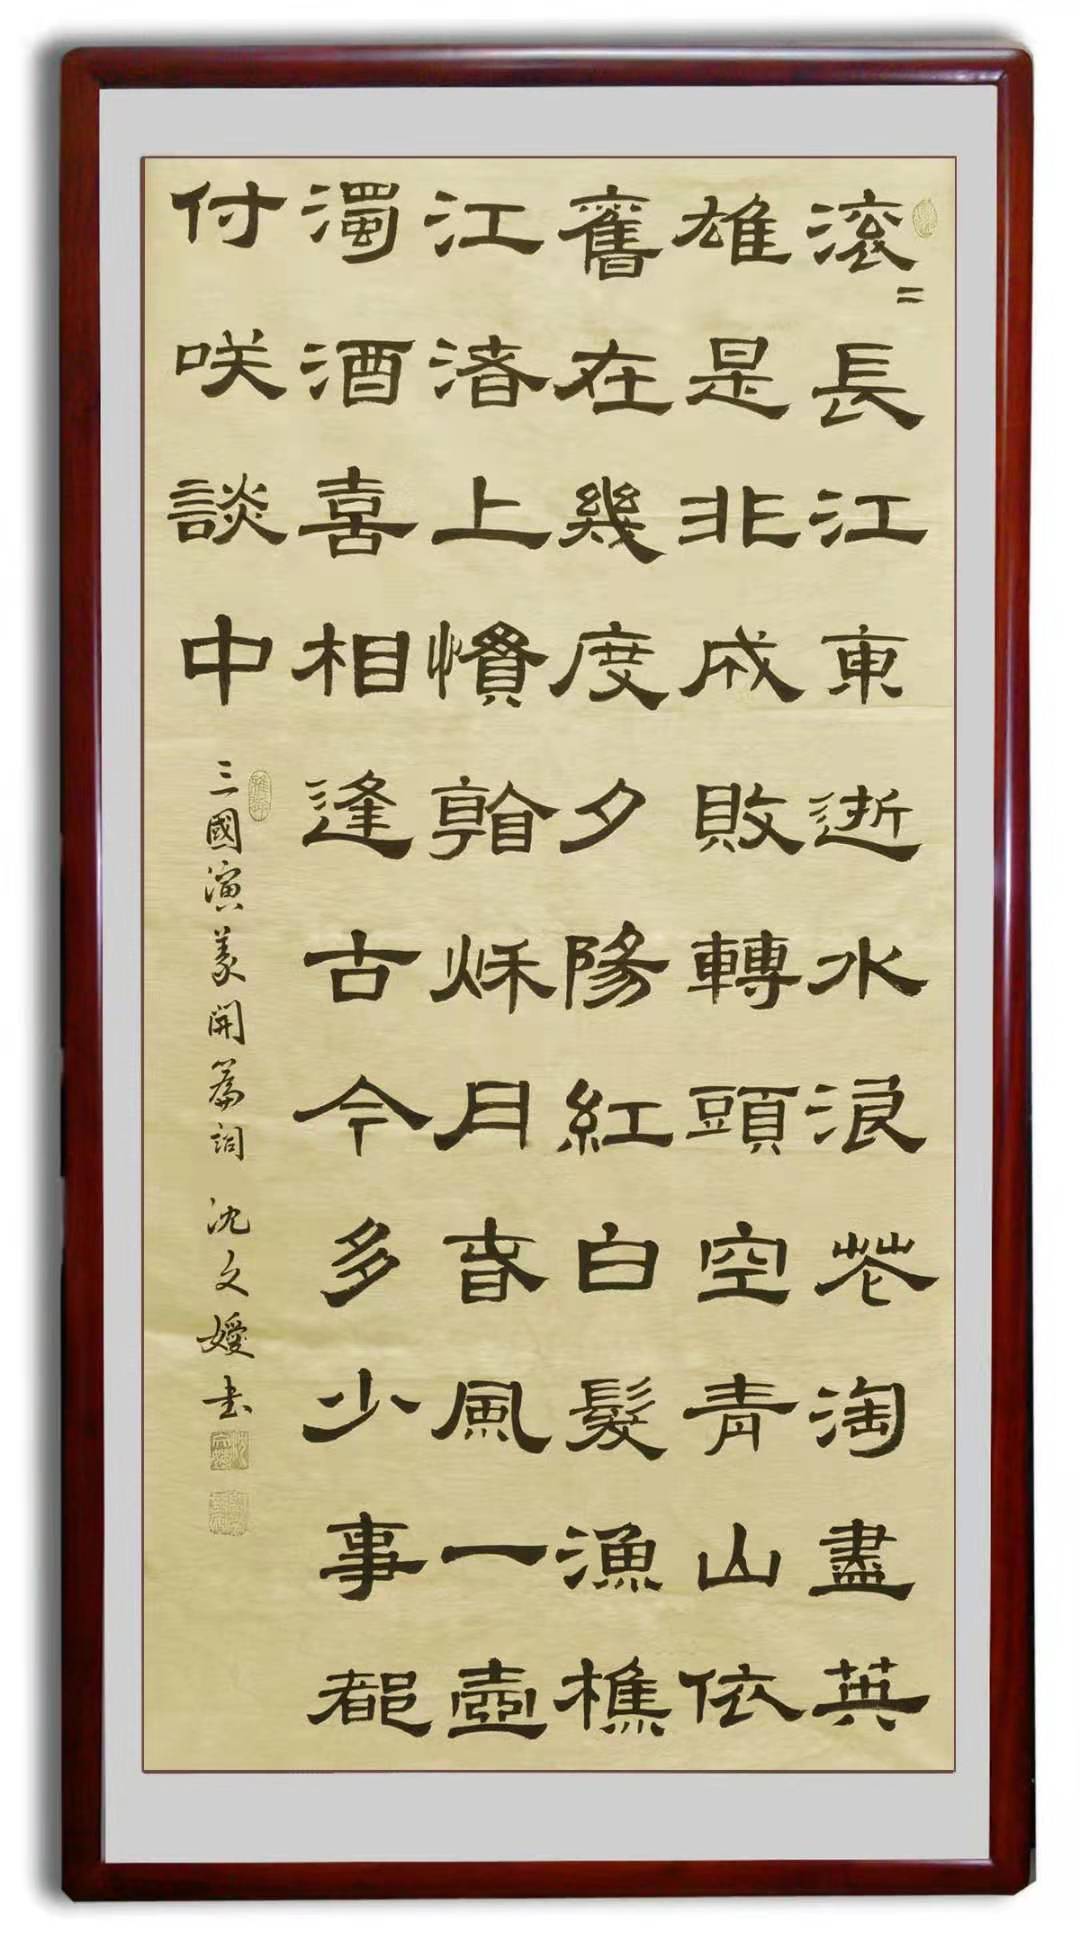 滚〻長江東逝水浪花淘盡英
雄是非成敗轉頭空青山依
舊在幾度夕陽紅白髮漁樵
江渚上慣看秌月春風一壺
濁酒喜相逢古今多少事都
付咲談中
三國演義開篇詞 沈文嬡书